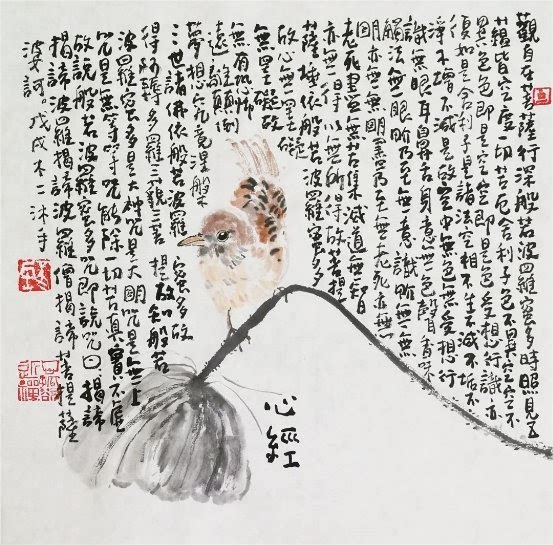 觀自在菩薩行深般若波羅蜜多時照見五
蘊皆空度一切苦厄舍利子色不異空空不
異色色即是空空即是色受想行識亦
復如是舍利子是諸法空相不生不滅不垢不
淨不增不減是故空中無色無受想行
識無眼耳鼻舌身意無色聲香味
觸法無眼界乃至無意識界無無
明亦無無明盡乃至無老死亦無
老死盡無苦集滅道無智
亦無得以無所得故菩提
薩埵依般若波羅蜜多
故心無罣礙
無罣礙故
無有恐怖
遠離顛倒
夢想究竟涅槃
三世諸佛依般若波羅蜜多故
得阿耨多羅三藐三菩提故知般若
波羅蜜多是大神咒是大明咒是無上
咒是無等等咒能除一切苦真實不虛
故說般若波羅蜜多咒即說咒曰揭諦
揭諦波羅揭諦波羅僧揭諦菩提薩
婆訶。戊戌不二沐手
心經